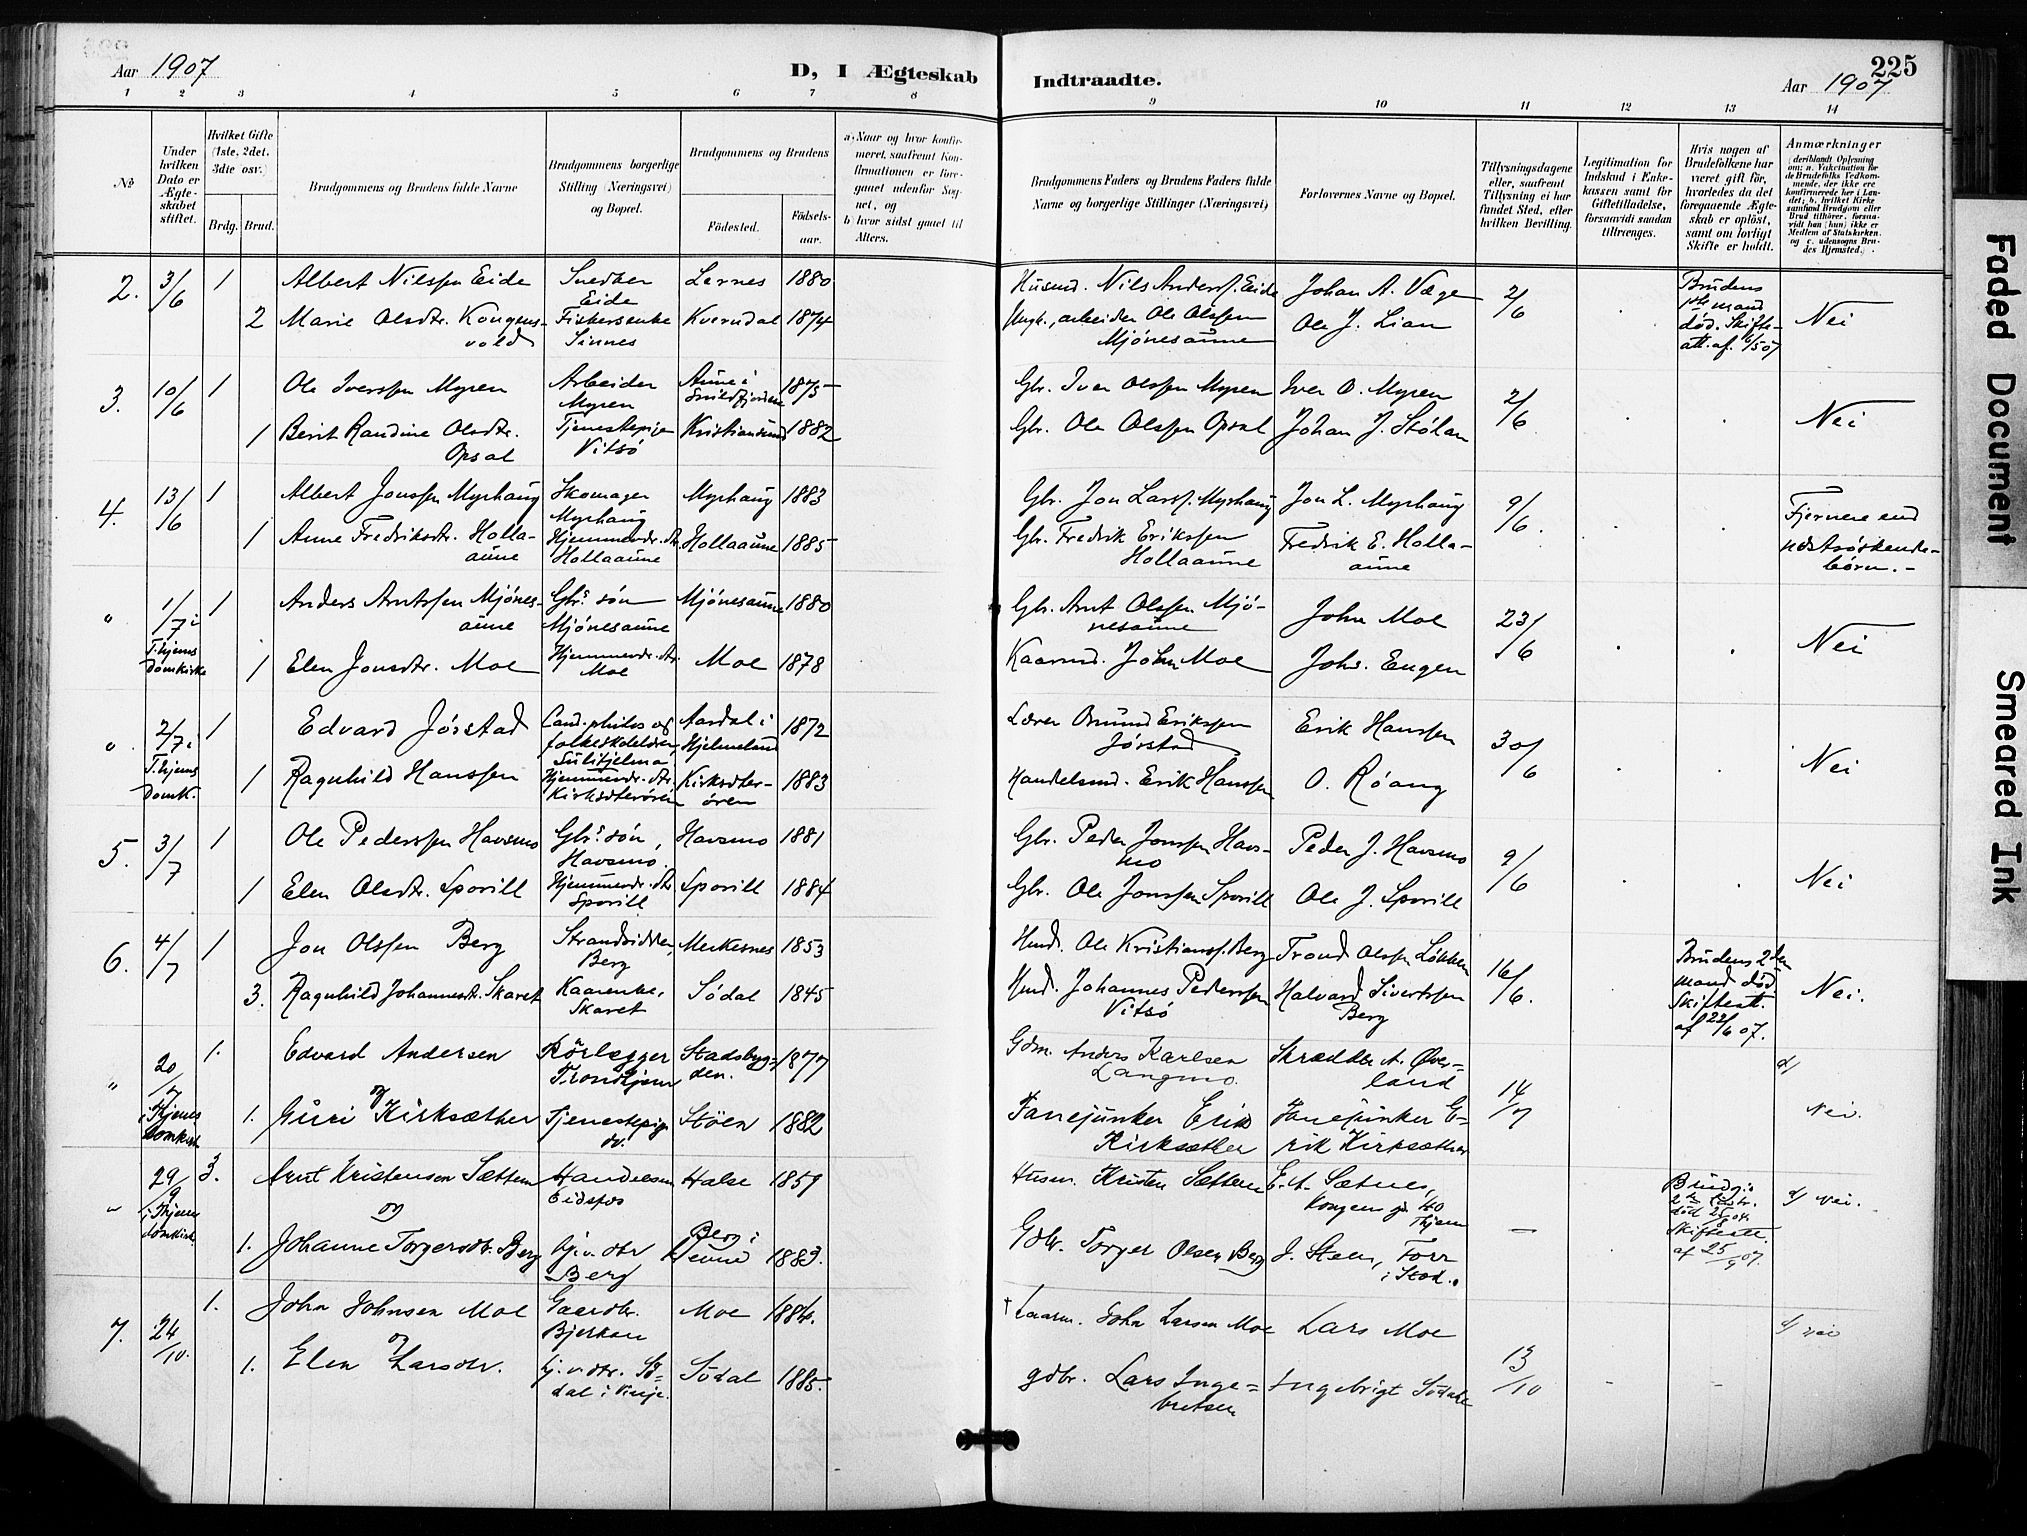 Aar 1907
D, I Ægteskab
Indtraadte.
225
Aar 1907
1 2 3 4 5 6 7 8 9 10 11 12 13 14
№
Under hvilken Dato er Ægteskabet stiftet.
Hvilket Gifte (1ste, 2det, 3die osv.)
Brdg. Brud.
Brudgommens og Brudens fulde Navne
Brudgommens borgerlige Stilling (Næringsvei) og Bopæl.
Brudgommens og Brudens
Fødested.
Fødselsaar.
a) Naar og hvor konfirmeret, saafremt Konfirmationen er foregaaet udenfor Sognet, og
b) hvor sidst gaaet til Alters.
Brudgommens Faders og Brudens Faders fulde Navne og borgerlige Stillinger (Næringsvei)
Forlovernes Navne og Bopæl.
Tillysningsdagene eller, saafremt Tillysning ei har fundet Sted, efter hvilken Bevilling.
Legitimation for Indskud i Enkekassen samt for Giftetilladelse, forsaavidt saadan tiltrænges.
Hvis nogen af Brudefolkene har været gift før, hvorledes da det foregaaende Ægteskab er opløst, samt om lovligt Skifte er holdt.
Anmærkninger
2. 3/6 1 Albert Nilssen Eide Snedker Eide Lernes 1880 Husmd. Nils Anderss. Eide Johan A. Væge 2/6
2 Marie Olsdtr. Kongensvold Fiskersenke Sinnes Kverndal 1874 Ungk., arbeider Ole Olssen Mjönesaune Ole J. Lian Brudens 1ste mand död. Skifteatt. af 6/5 07 Nei
3. 10/6 1 Ole Iverssen Myren Arbeider Myren Aune i Snildfjorden 1875 Gbr. Iver Olssen Myren Iver O. Myren 2/6
1 Berit Randine Olsdtr. Opsal Tjenestepige Vitsö Kristiansund 1882 Gbr. Ole Olssen Opsal Johan J. Stölan Nei
4. 13/6 1 Albert Jonssen Myrhaug Skomager Myrhaug Myrhaug 1883 Gbr. Jon Larss. Myrhaug Jon L. Myrhaug 9/6
1 Anne Fredriksdtr. Hollaaune Hjemmev. dtr. Hollaaune Hollaaune 1885 Gbr. Fredrik Erikssen Hollaaune Fredrik E. Hollaaune Fjernere end næstsöskendebörn. -
" 1/7 i T.hjems Domkirke 1 Anders Arntssen Mjönesaune Gbrs sön Mjönesaune Mjönesaune 1880 Gbr. Arnt Olssen Mjönesaune John Moe 23/6
1 Elen Jonsdtr. Moe Hjemmev. dtr. Moe Moe 1878 Kaarmd. John Moe Johs. Eugen Nei
" 2/7 i T.hjems Domk. 1 Edvard Jörstad Cand. philos og folkeskolelærer, Sulitjelma Aardal i Hjelmeland 1872 Lærer Osmund Erikssen Jörstad Erik Hanssen 30/6
1 Ragnhild Hanssen Hjemmev. dtr. Kirksæterören Kirksæterören 1883 Handelsmd. Erik Hanssen O. Röang Nei
5. 3/7 1 Ole Pederssen Havsmo Gbrs sön, Havsmo. Havsmo 1881 Gbr. Peder Jonssen Havsmo Peder J. Havsmo 9/6
1 Elen Olsdtr. Sporill Hjemmev. dtr. Sporill Sporill 1884 Gbr. Ole Jonssen Sporill Ole J. Sporill Nei
6. 4/7 1 Jon Olssen Berg Strandsidder, Berg 1853 Hmd. Ole Kristianss. Berg Trond Olssen Løkken 16/6.
3. Ragnhild Johannesdtr. Skaret Kaarenke, Skaret Södal 1845 Hmd. Johannes Pederssen Vitsö Halvard Sivertssen Berg Brudens 2den mand död Skifteatt. af 22/6 07. Nei.
" 20/7 i Thjems Domkirk 1. Edvard Andersen Rörlægger Trondhjem Stadsbygden. 1877 Gdm. Anders Karlsen Langmo. Skrædder A. Øverland 14/7 d/
og
1. Guri Kirksæther Tjenestepige do. Stöen 1882 Fanejunker Erik Kirksæther Fanejunker Erik Kirksæther Nei.
" 29/9 i Thjem domkirk. 3. Arnt Kristensen Sættem Handelsm Eidsfos Halse 1859 Husm. Kristen Sættem E. A. Sætnes, Kongens g. 40 Thjem - Brudg.s 2. hustr. död Skifteatt. af 25/9 07. d/ nei.
og
1. Johanne Torgersdtr. Berg hj.v. dtr Berg Berg i Hevne 1883. Gdbr. Torger Olsen Berg J. Steen, Forr i Stod.
7. 24/10. 1. John Johnsen Moe Gaardbr. Bjerkan Moe 1884. † Kaarm. John Larsen Moe Lars Moe 13/10 d/ nei
og
1. Elen Larsdtr. hj.v. dtr. Södal i Vinje. Södal 1885. gdbr. Lars Ingebretsen Ingebrigt Södal
Faded Document
Smeared Ink